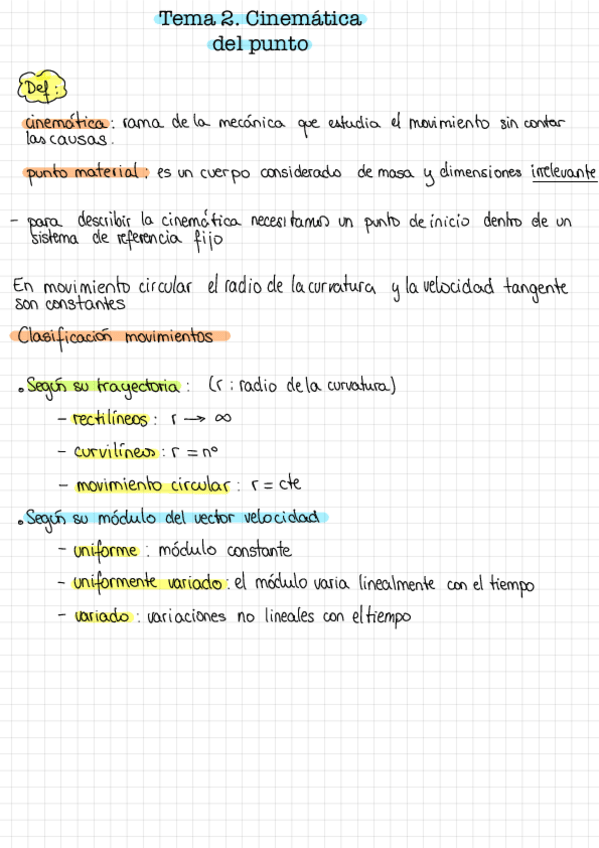 Tema 2. Cinemática
del punto
Def:
cinemática: rama de la mecánica que estudia el movimiento sin contar
las causas.
punto material: es un cuerpo considerado de masa y dimensiones irrelevante
- para describir la cinemática necesitamos un punto de inicio dentro de un
sistema de referencia fijo
En movimiento circular el radio de la curvatura y la velocidad tangente
son constantes
Clasificación movimientos
• Según su trayectoria: (r: radio de la curvatura)
- rectilíneos: r → ∞
- curvilíneos: r = nº
- movimiento circular: r = cte
• Según su módulo del vector velocidad
- uniforme: módulo constante
- uniformente variado: el módulo varia linealmente con el tiempo
- variado: variaciones no lineales con el tiempo